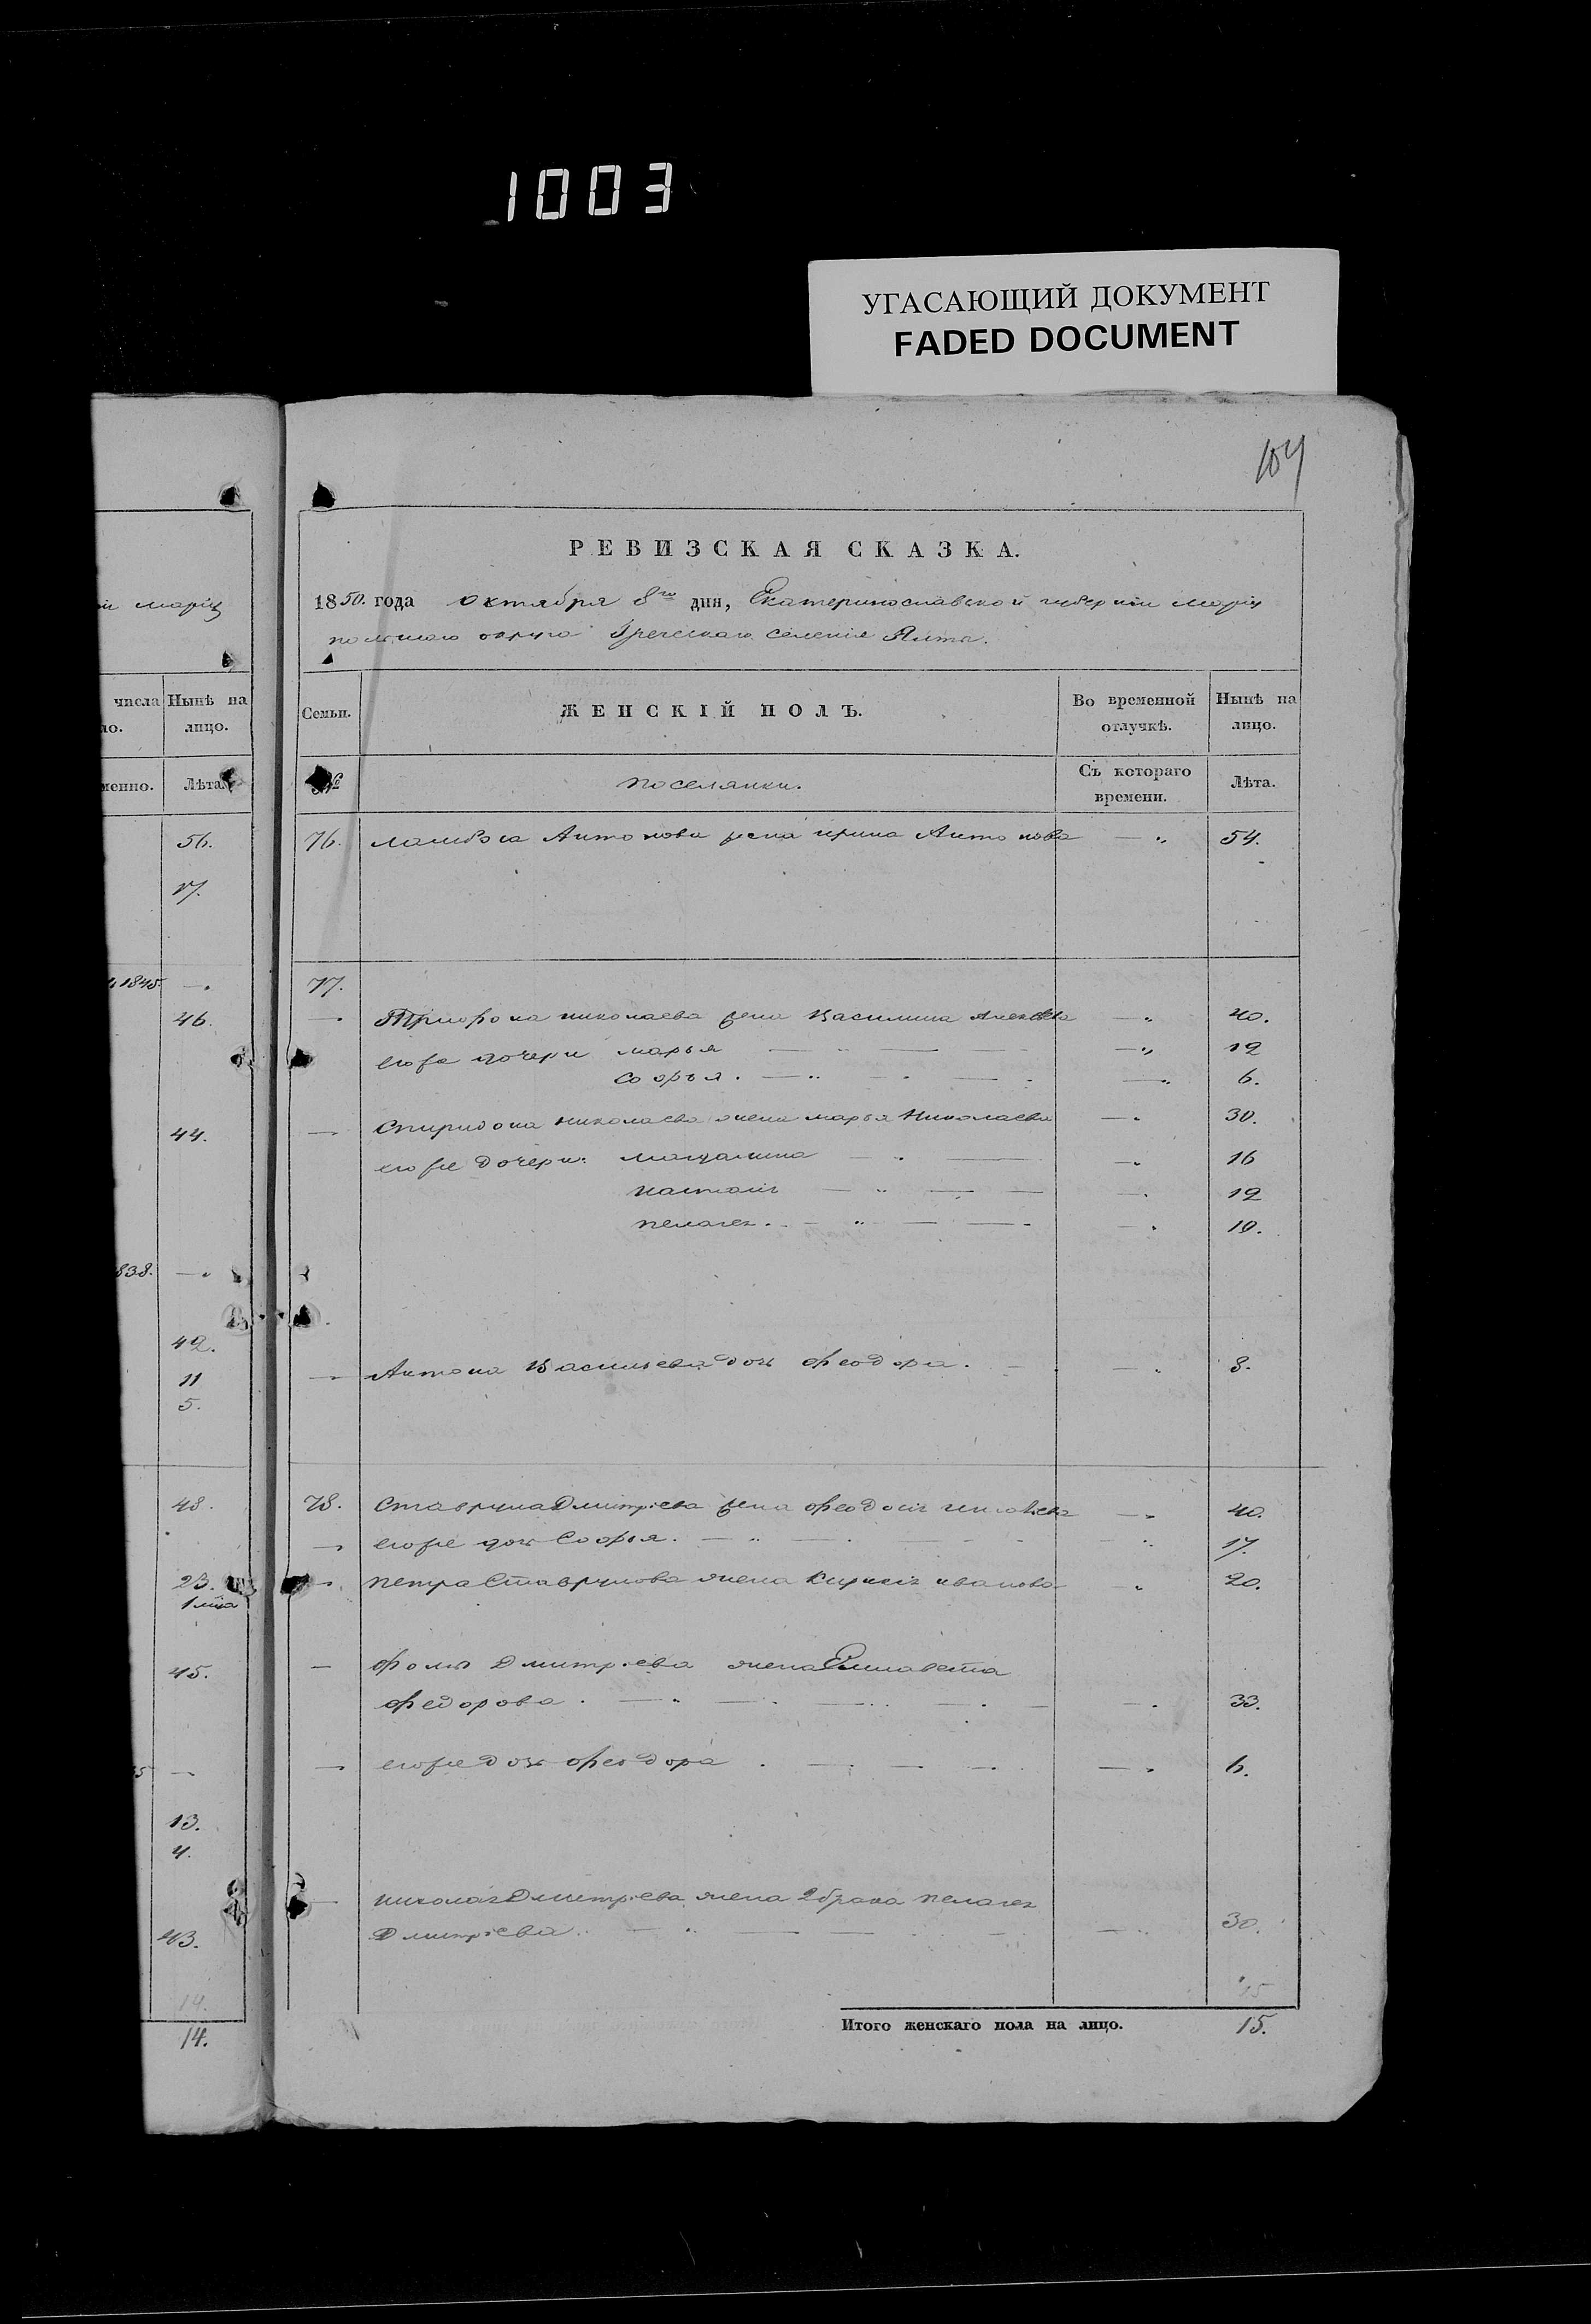 1003
УГАСАЮЩИЙ ДОКУМЕНТ
FADED DOCUMENT
104
РЕВИЗСКАЯ СКАЗКА.
1850. года октября 8го дня, Екатеринославской губернии Маріу
польскаго округа Греческаго селенія Ялты.
Семьи. ЖЕНСКІЙ ПОЛЪ. Во временной отлучкѣ. Нынѣ на лицо.
№ поселянки. Съ котораго времени. Лѣта.
76. Антонова жена ирина Антонова — 54.
77.
— Трифона николаева жена Василина — 40.
его же дочери марья — 12
Софья. — 6.
— Спиридона николаева жена марья Николаева — 30.
его же дочери: — 16
настасія — 12
пелагея. — 10.
— Антона Васильева дочь феодора. — 8.
78. Ставрина Дмитріева жена феодосія — 40.
— его же дочь Софья. — 17.
— петра Ставринова жена иванова 20.
— фомы Дмитріева жена Елисавета
федорова. — 33.
— его же дочь феодора. — 6.
— николая Дмитріева жена 2 брака пелагея
Дмитріева. — 30.
15
Итого женскаго пола на лицо. 15.
й маріу
числа Нынѣ на
ло. лицо.
менно. Лѣта.
56.
17.
1845. —
46.
44.
838. —
42.
11
5.
48.
23.
45.
5 —
13.
4.
43.
14.
14.